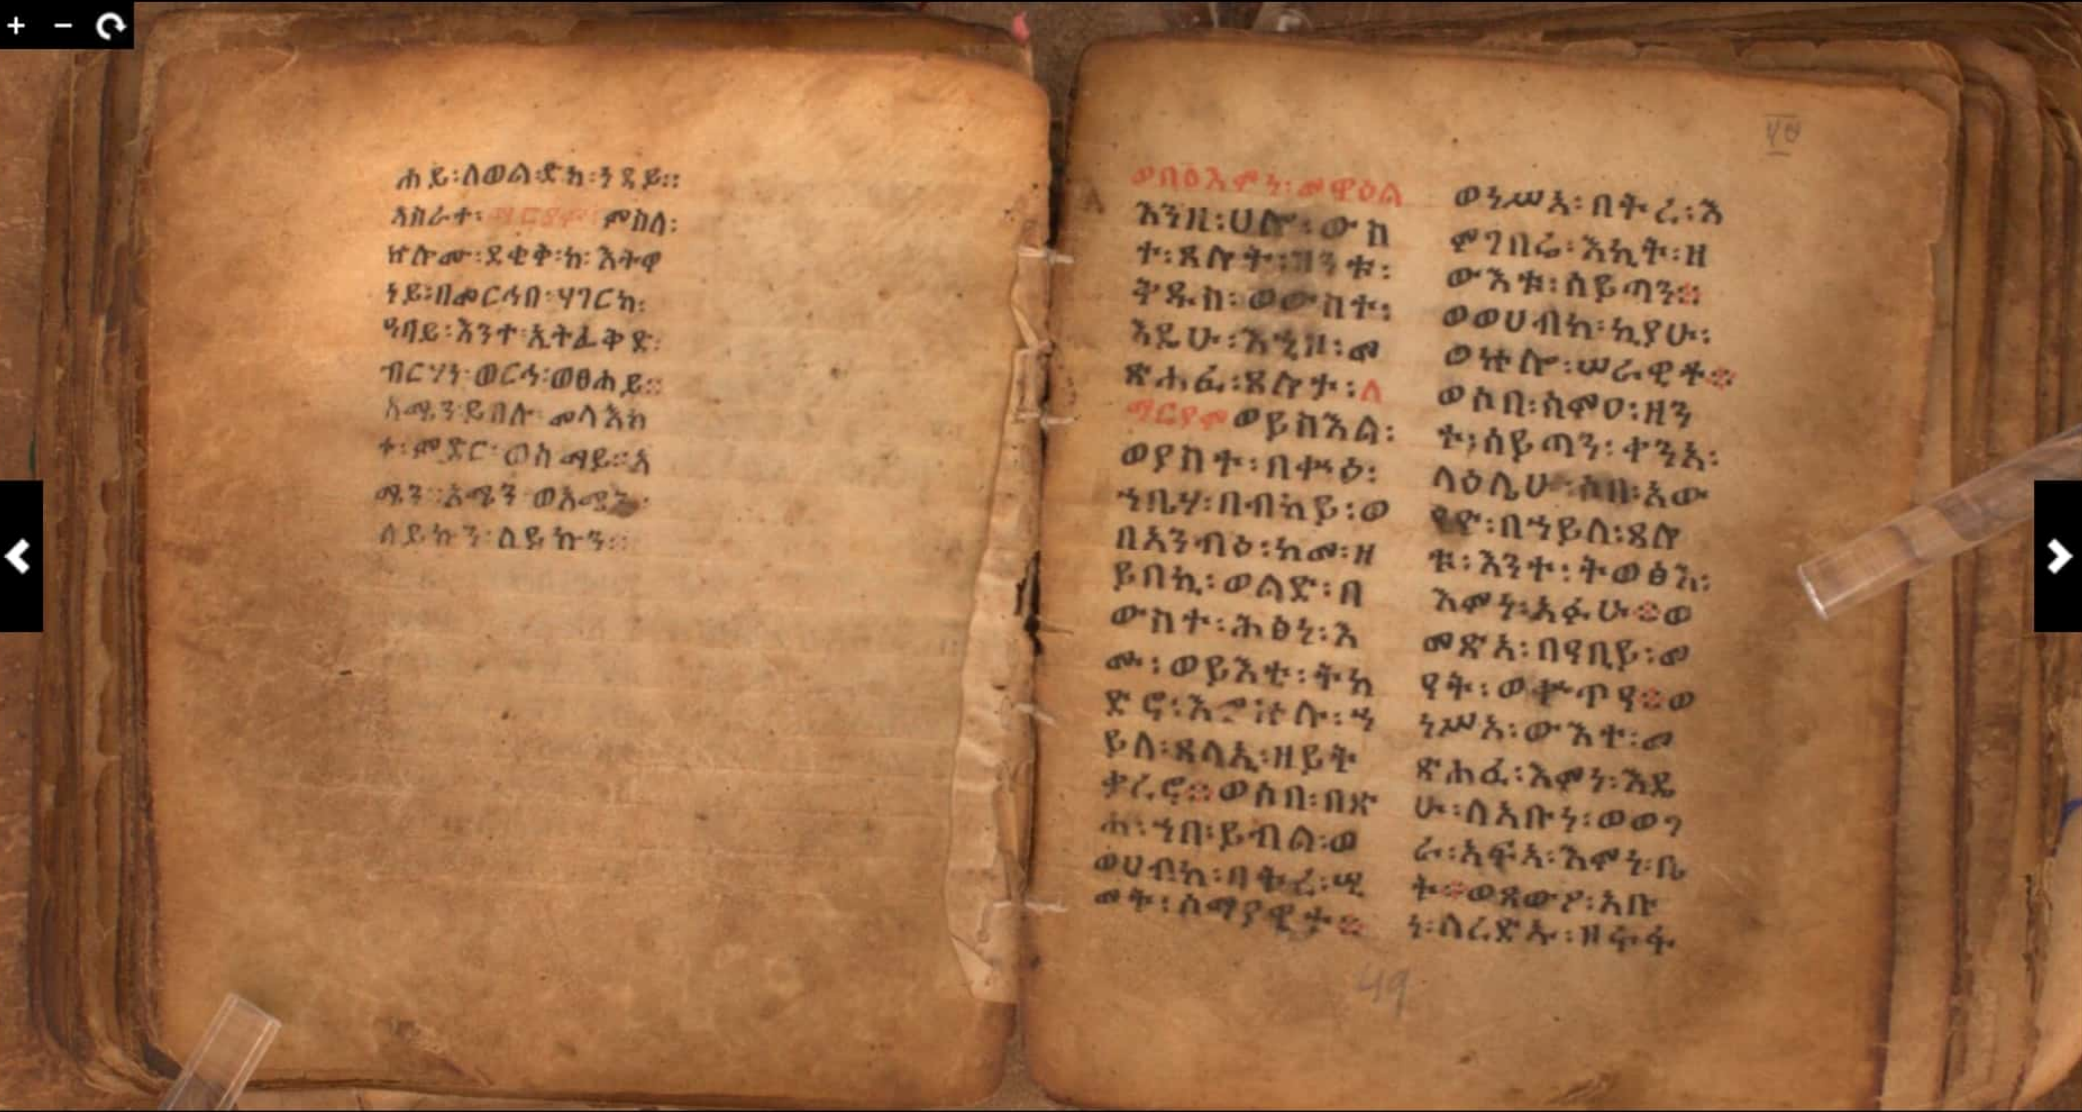 ሐይ፡ለወልድከ፡ንዳይ።
አስራተ፡ማርያም፡ምስለ፡
ኵሎሙ፡ደቂቅ፡ከ፡እትዋ
ነይ፡በመርኅበ፡ሃገርከ፡
ዓባይ፡እንተ፡ኢትፈቅድ፡
ብርሃነ፡ወርኅ፡ወፀሐይ።
አሜን፡ይበሉ፡መላእክ
ተ፡ምድር፡ወሰማይ።አ
ሜን፡አሜን፡ወአሜን፡
ለይኩን፡ለይኩን።
፶፱
ወበዕእምነ፡መዋዕል
እንዘ፡ሀሎ፡ውስ
ተ፡ጸሎት፡ዝንቱ፡
ቅዱስ፡ወውስተ፡
እዴሁ፡እኂዘ፡መ
ጽሐፈ፡ጸሎታ፡ለ
ማርያም፡ወይስእል፡
ወያስተ፡በቍዕ፡
ኀቤሃ፡በብካይ፡ወ
በአንብዕ፡ከመ፡ዘ
ይበኪ፡ወልድ፡በ
ውስተ፡ሕፅነ፡እ
ሙ፡ወይእቲ፡ትከ
ድኖ፡እምኵሉ፡ኀ
ይለ፡ጸላኢ፡ዘይት
ቃረኖ።ወሶበ፡በጽ
ሐ፡ኀበ፡ይብል፡ወ
ወሀብከ፡በትረ፡ሢ
መት፡ሰማያዊት።
ወነሥአ፡በትረ፡እ
ምገበሬ፡እኪት፡ዘ
ውእቱ፡ሰይጣን።
ወወሀብከ፡ኪያሁ፡
ወኵሎ፡ሠራዊቶ።
ወሶበ፡ሰምዐ፡ዘን
ተ፡ሰይጣን፡ቀንአ፡
ላዕሌሁ፡ሶበ፡አው
የዮ፡በኀይለ፡ጸሎ
ቱ፡እንተ፡ትወፅእ፡
እምነ፡አፉሁ።ወ
መጽአ፡በዓቢይ፡መ
ዓት፡ወቍጥዓ።ወ
ነሥአ፡ውእተ፡መ
ጽሐፈ፡እምነ፡እዴ
ሁ፡ለአቡነ፡ወወገ
ራ፡አፍአ፡እምነ፡ቤ
ት።ወጸውዖ፡አቡ
ነ፡ለረድኡ፡ዘፋፋ
49